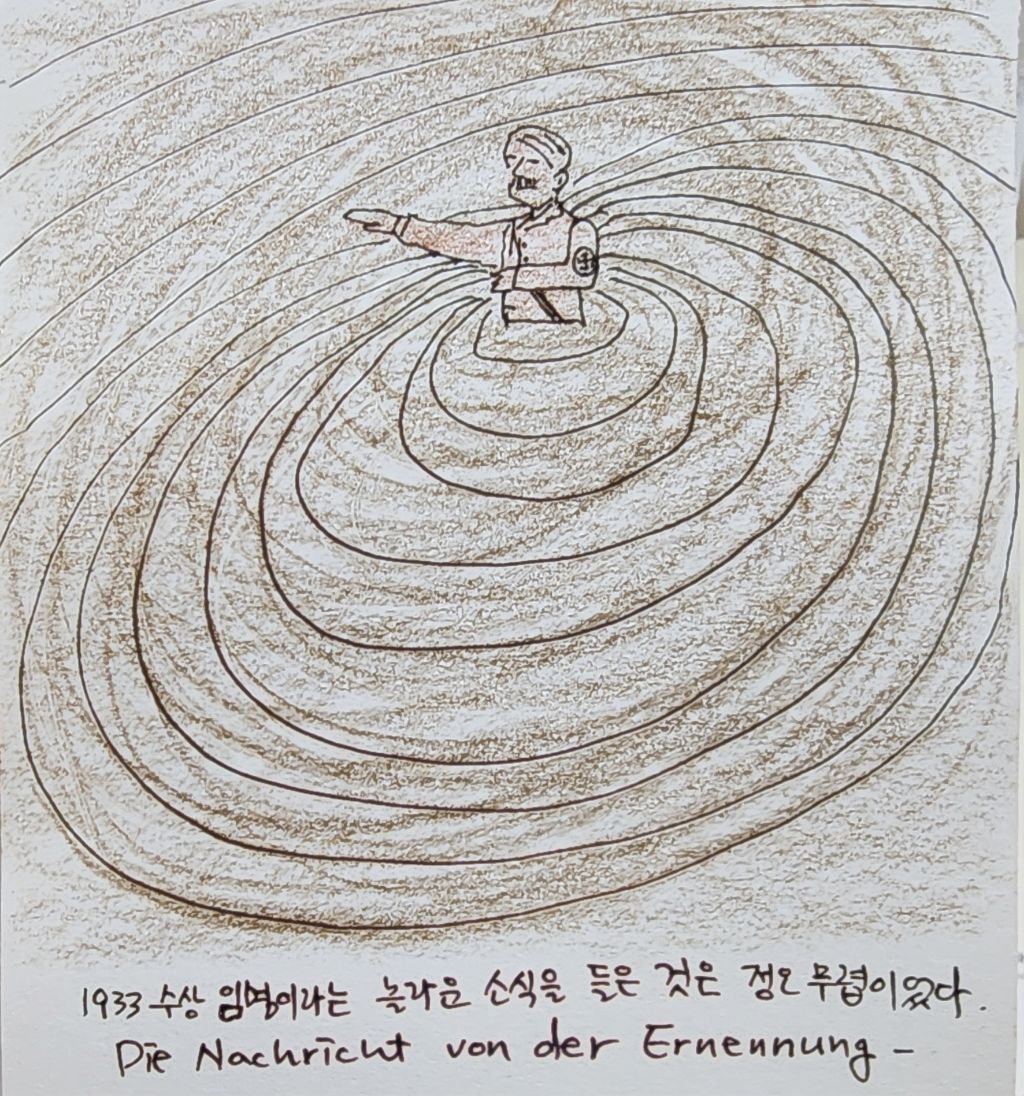 1933 수상 임명이라는 놀라운 소식을 들은 것은 정오 무렵이었다.
Die Nachricht von der Ernennung –